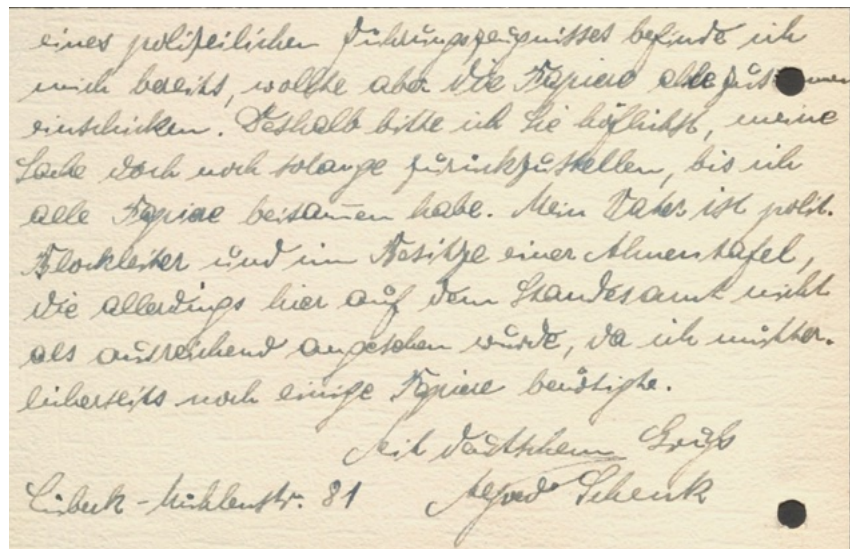 eines polizeilichen Führungszeugnisses befinde ich
mich bereits, wollte aber die Papiere alle zus men
einschicken. Deshalb bitte ich Sie höflichst, meine
Sache doch noch solange zurückzustellen, bis ich
alle Papiere beisamen habe. Mein Vater ist polit.
Blockleiter und im Besitze einer Ahnentafel,
die allerdings hier auf dem Standesamt nicht
als ausreichend angesehen wurde, da ich mütter-
licherseits noch einige Papiere benötigte.
Mit deutschem Gruß
Lübeck - Mühlenstr. 81 Alfred Schenk